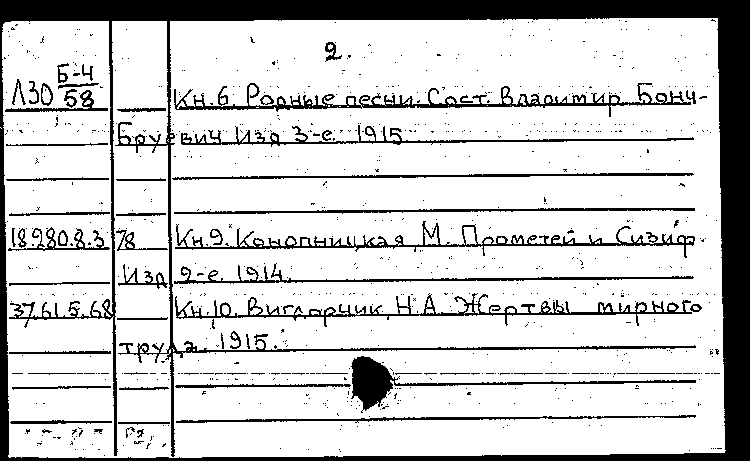 2.
Б-4
Л30 58 Кн.6. Родные песни. Сост. Владимир Бонч-
Бруевич Изд 3-е. 1915
18.280.8.3 78 Кн.9. Конопницкая, М. Прометей и Сизиф.
Изд 2-е. 1914.
37.61.5.68 Кн.10. Вигдорчик, Н.А. Жертвы мирного
труда. 1915.